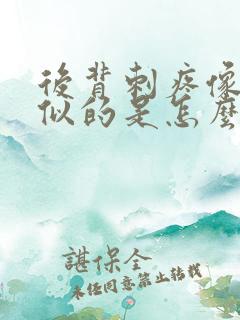 後背刺疼像
似的是怎麼
諶保全
未任同意禁止转载